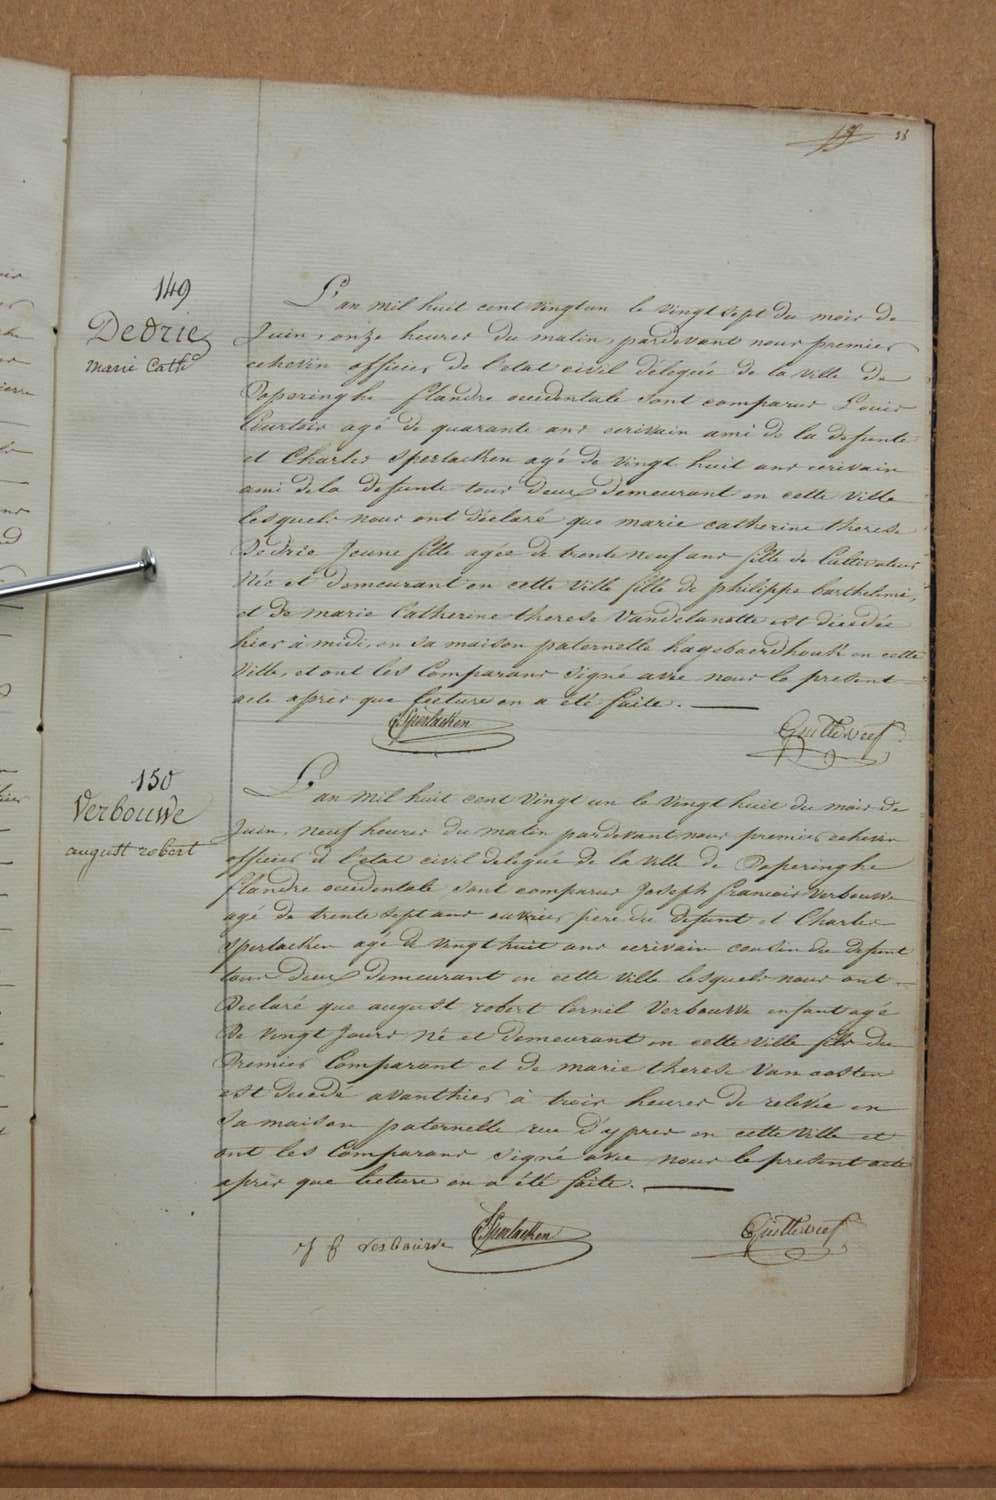 38
149
Dedrie
marie Cath
L'an mil huit cent vingt un le vingt sept du mois de
Juin, onze heures du matin, pardevant nous premier
echevin officier de l'etat civil délégué de la ville de
Poperinghe flandre occidentale sont comparus Louis
Courtois agé de quarante ans ecrivain ami de la defunte
et Charles Sperlaeken agé de vingt huit ans ecrivain
ami de la defunte tous deux demeurant en cette ville
lesquels nous ont déclaré que marie catherine therese
Dedrie Jeune fille agée de trente neuf ans fille de Cultivateur
Née et demeurant en cette ville fille de philippe barthelmi,
et de marie Catherine therese Vandelanotte est décédée
hier à midi, en sa maison paternelle hagebaerdhouk en cette
ville, et ont les Comparans signé avec nous le present
acte après que lecture en a été faite.
CSperlaeken
150
Verbouwe
august robert
L'an mil huit cent vingt un le vingt huit du mois de
Juin, neuf heures du matin pardevant nous premier echevin
officier d l'etat civil delegué de la ville de Poperinghe
flandre occidentale sont comparus Joseph francois Verbouwe
agé de trente sept ans ouvrier père du defunt et Charles
Sperlaeken agé de vingt huit ans ecrivain cousin du defunt
tous deux demeurant en cette ville lesquels nous ont
Declaré que august robert Cornil Verbouwe enfant agé
de vingt Jours né et demeurant en cette ville fils du
Premier Comparant et de marie therese Van oosten
est decedé avanthier à trois heures de relevée en
Sa maison paternelle rue d'ypres en cette ville et
ont les Comparans signé avec nous le present acte
après que lecture en a été faite.
J f verbouwe CSperlaeken